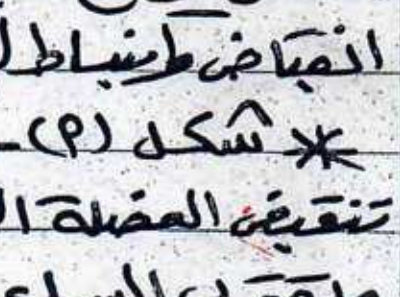 انقباض وانبساط
* شكل (م) -
تنقبض العضلة ا